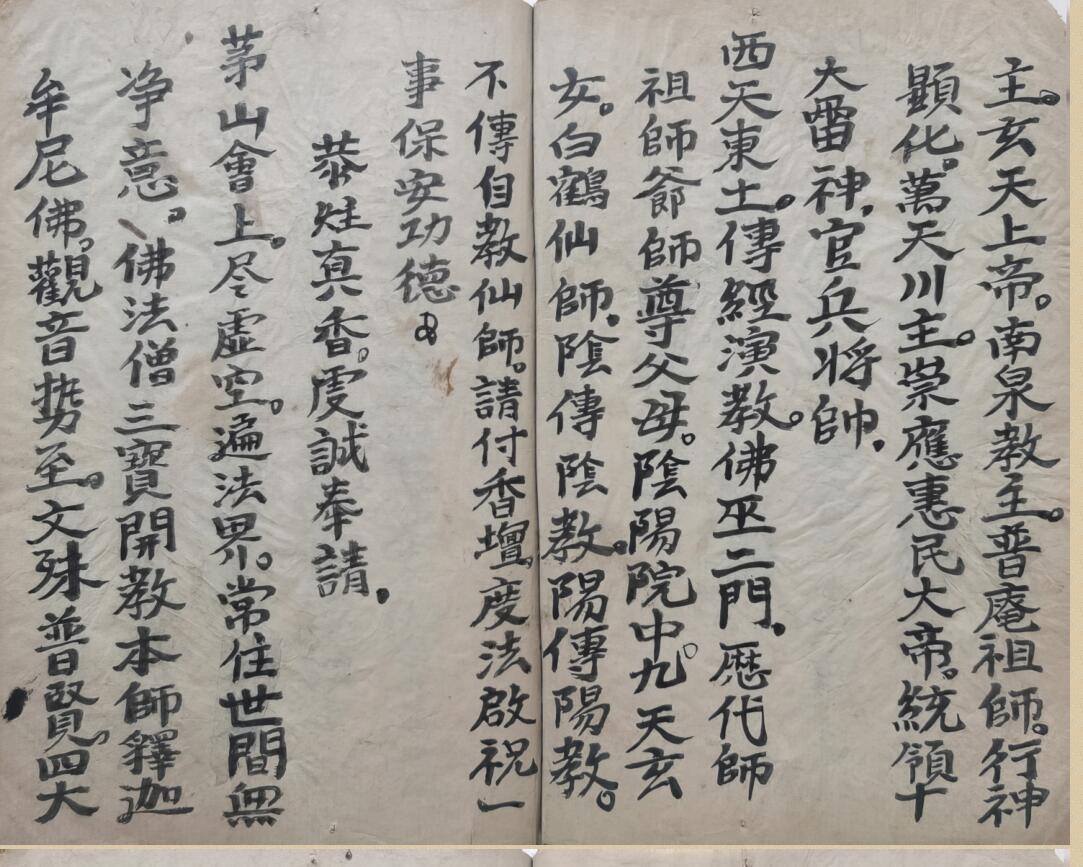 主。玄天上帝。南泉教主。普庵祖師。行神
顯化。萬天川主。崇應惠民大帝。統領十
大雷神，官兵將帥，
西天東土。傳經演教。佛巫二門，歷代師
祖師爺師尊父母。陰陽院中。九天玄
女。白鶴仙師，陰傳陰教。陽傳陽教。
不傳自教仙師。請付香壇，度法啟祝一
事保安功德
恭炷真香。虔誠奉請，
茅山會上。尽虛空。遍法界。常住世間無
净意。佛法僧三寶開教本師釋迦
牟尼佛。觀音势至。文殊普賢。四大